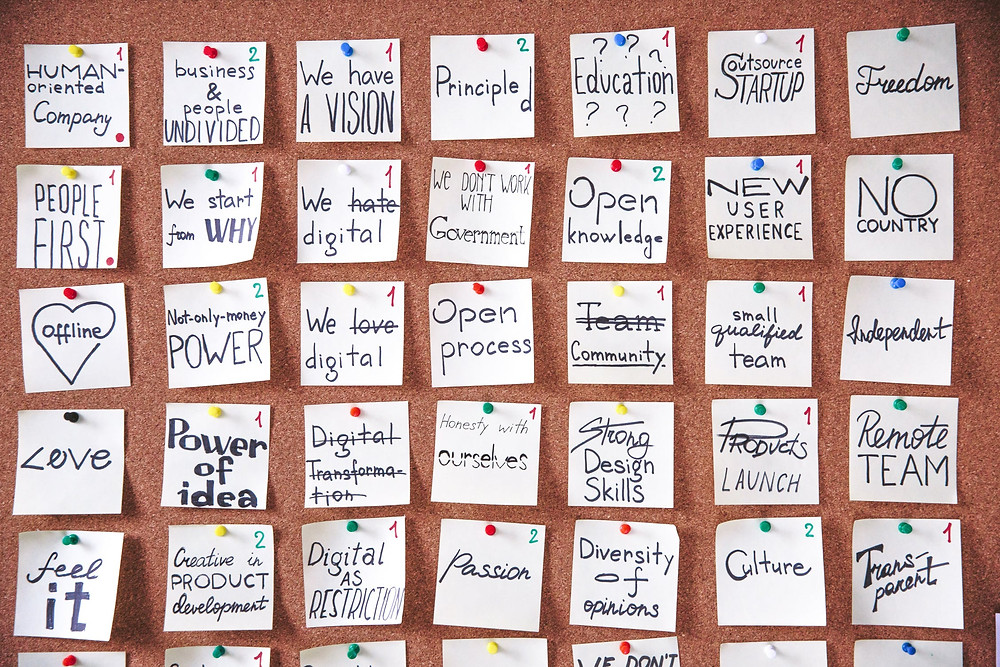 HUMAN-
oriented
Company
1
business
&
people
UNDIVIDED
2
We have
A VISION
1
Principled
2
? ? ?
Education
? ? ?
1
Outsource
STARTUP
1
Freedom
PEOPLE
FIRST
1
We start
from WHY
1
We hate
digital
1
We DON'T WORK
WITH
Government
1
Open
knowledge
2
NEW
USER
EXPERIENCE
1
NO
COUNTRY
offline
Not-only-money
POWER
2
We love
digital
1
Open
process
Team
Community
1
small
qualified
team
1
Independent
Love
Power
of
idea
1
Digital
Transforma-
tion
Honesty with
ourselves
1
Strong
Design
Skills
PRODUCTS
LAUNCH
1
Remote
TEAM
feel
it
Creative in
PRODUCT
development
2
Digital
AS
RESTRICTION
1
Passion
2
Diversity
of
opinions
Culture
2
Trans-
parent
1
1
WE DON'T